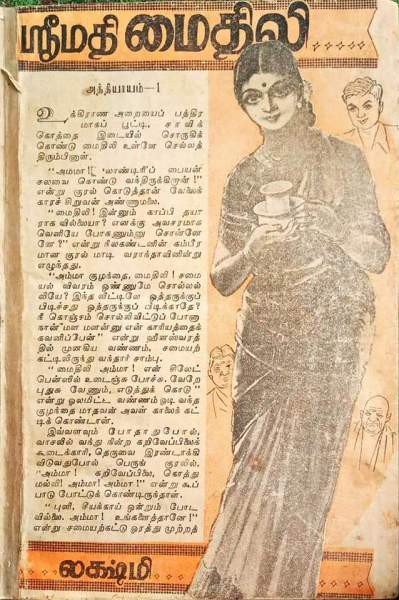 ஸ்ரீமதி மைதிலி
அத்தியாயம்—1
உக்கிராண அறையைப் பத்திர
மாகப் பூட்டி, சாவிக்
கொத்தை இடையில் சொருகிக்
கொண்டு மைதிலி உள்ளே செல்லத்
திரும்பினாள்.
"அம்மா! 'லாண்டிரி'ப் பையன்
சலவை கொண்டு வந்திருக்கிறான்!"
என்று குரல் கொடுத்தான் வேலைக்
காரச் சிறுவன் அண்ணாமலை.
"மைதிலி! இன்னும் காப்பி தயா
ராகவில்லையா? எனக்கு அவசரமாக
வெளியே போகணும்னு சொன்னே
னே?" என்று நீலகண்டனின் கம்பீர
மான குரல் மாடி வராந்தாவினின்று
எழுந்தது.
"அம்மா குழந்தை, மைதிலி! சமை
யல் விவரம் ஒண்ணுமே சொல்லல்
லியே? இந்த வீட்டிலே ஒத்தருக்குப்
பிடிச்சது ஒத்தருக்குப் பிடிக்காதே?
நீ கொஞ்சம் சொல்லிவிட்டுப் போனா
நான் மள மளன்னு என் காரியத்தைக்
கவனிப்பேன்" என்று ஹீனஸ்வரத்
தில் முனகிய வண்ணம், சமையற்
கட்டிலிருந்து வந்தார் சாம்பு.
"மைதிலி அம்மா! என் சிலேட்
பென்ஸில் உடைஞ்சு போச்சு. வேறே
புதுசு வேணும், எடுத்துக் கொடு"
என்று ஓலமிட்ட வண்ணம் ஓடி வந்த
குழந்தை மாதவன் அவள் காலைக் கட்
டிக் கொண்டான்.
இவ்வளவும் போதாதுபோல்,
வாசலில் வந்து நின்ற கறிவேப்பிலைக்
கூடைக்காரி, தெருவை இரண்டாக்கி
விடுவதுபோல் பெருங் குரலில்,
"அம்மா! கறிவேப்பிலை, கொத்து
மல்லி! அம்மா! அம்மா!" என்று கூப்
பாடு போட்டுக் கொண்டிருந்தாள்.
"புளி, சீயக்காய் ஒன்றும் போட
வில்லை. அம்மா! உங்களைத்தானே!"
என்று சமையற்கட்டு ஓரத்து முற்றத்
லக்ஷ்மி